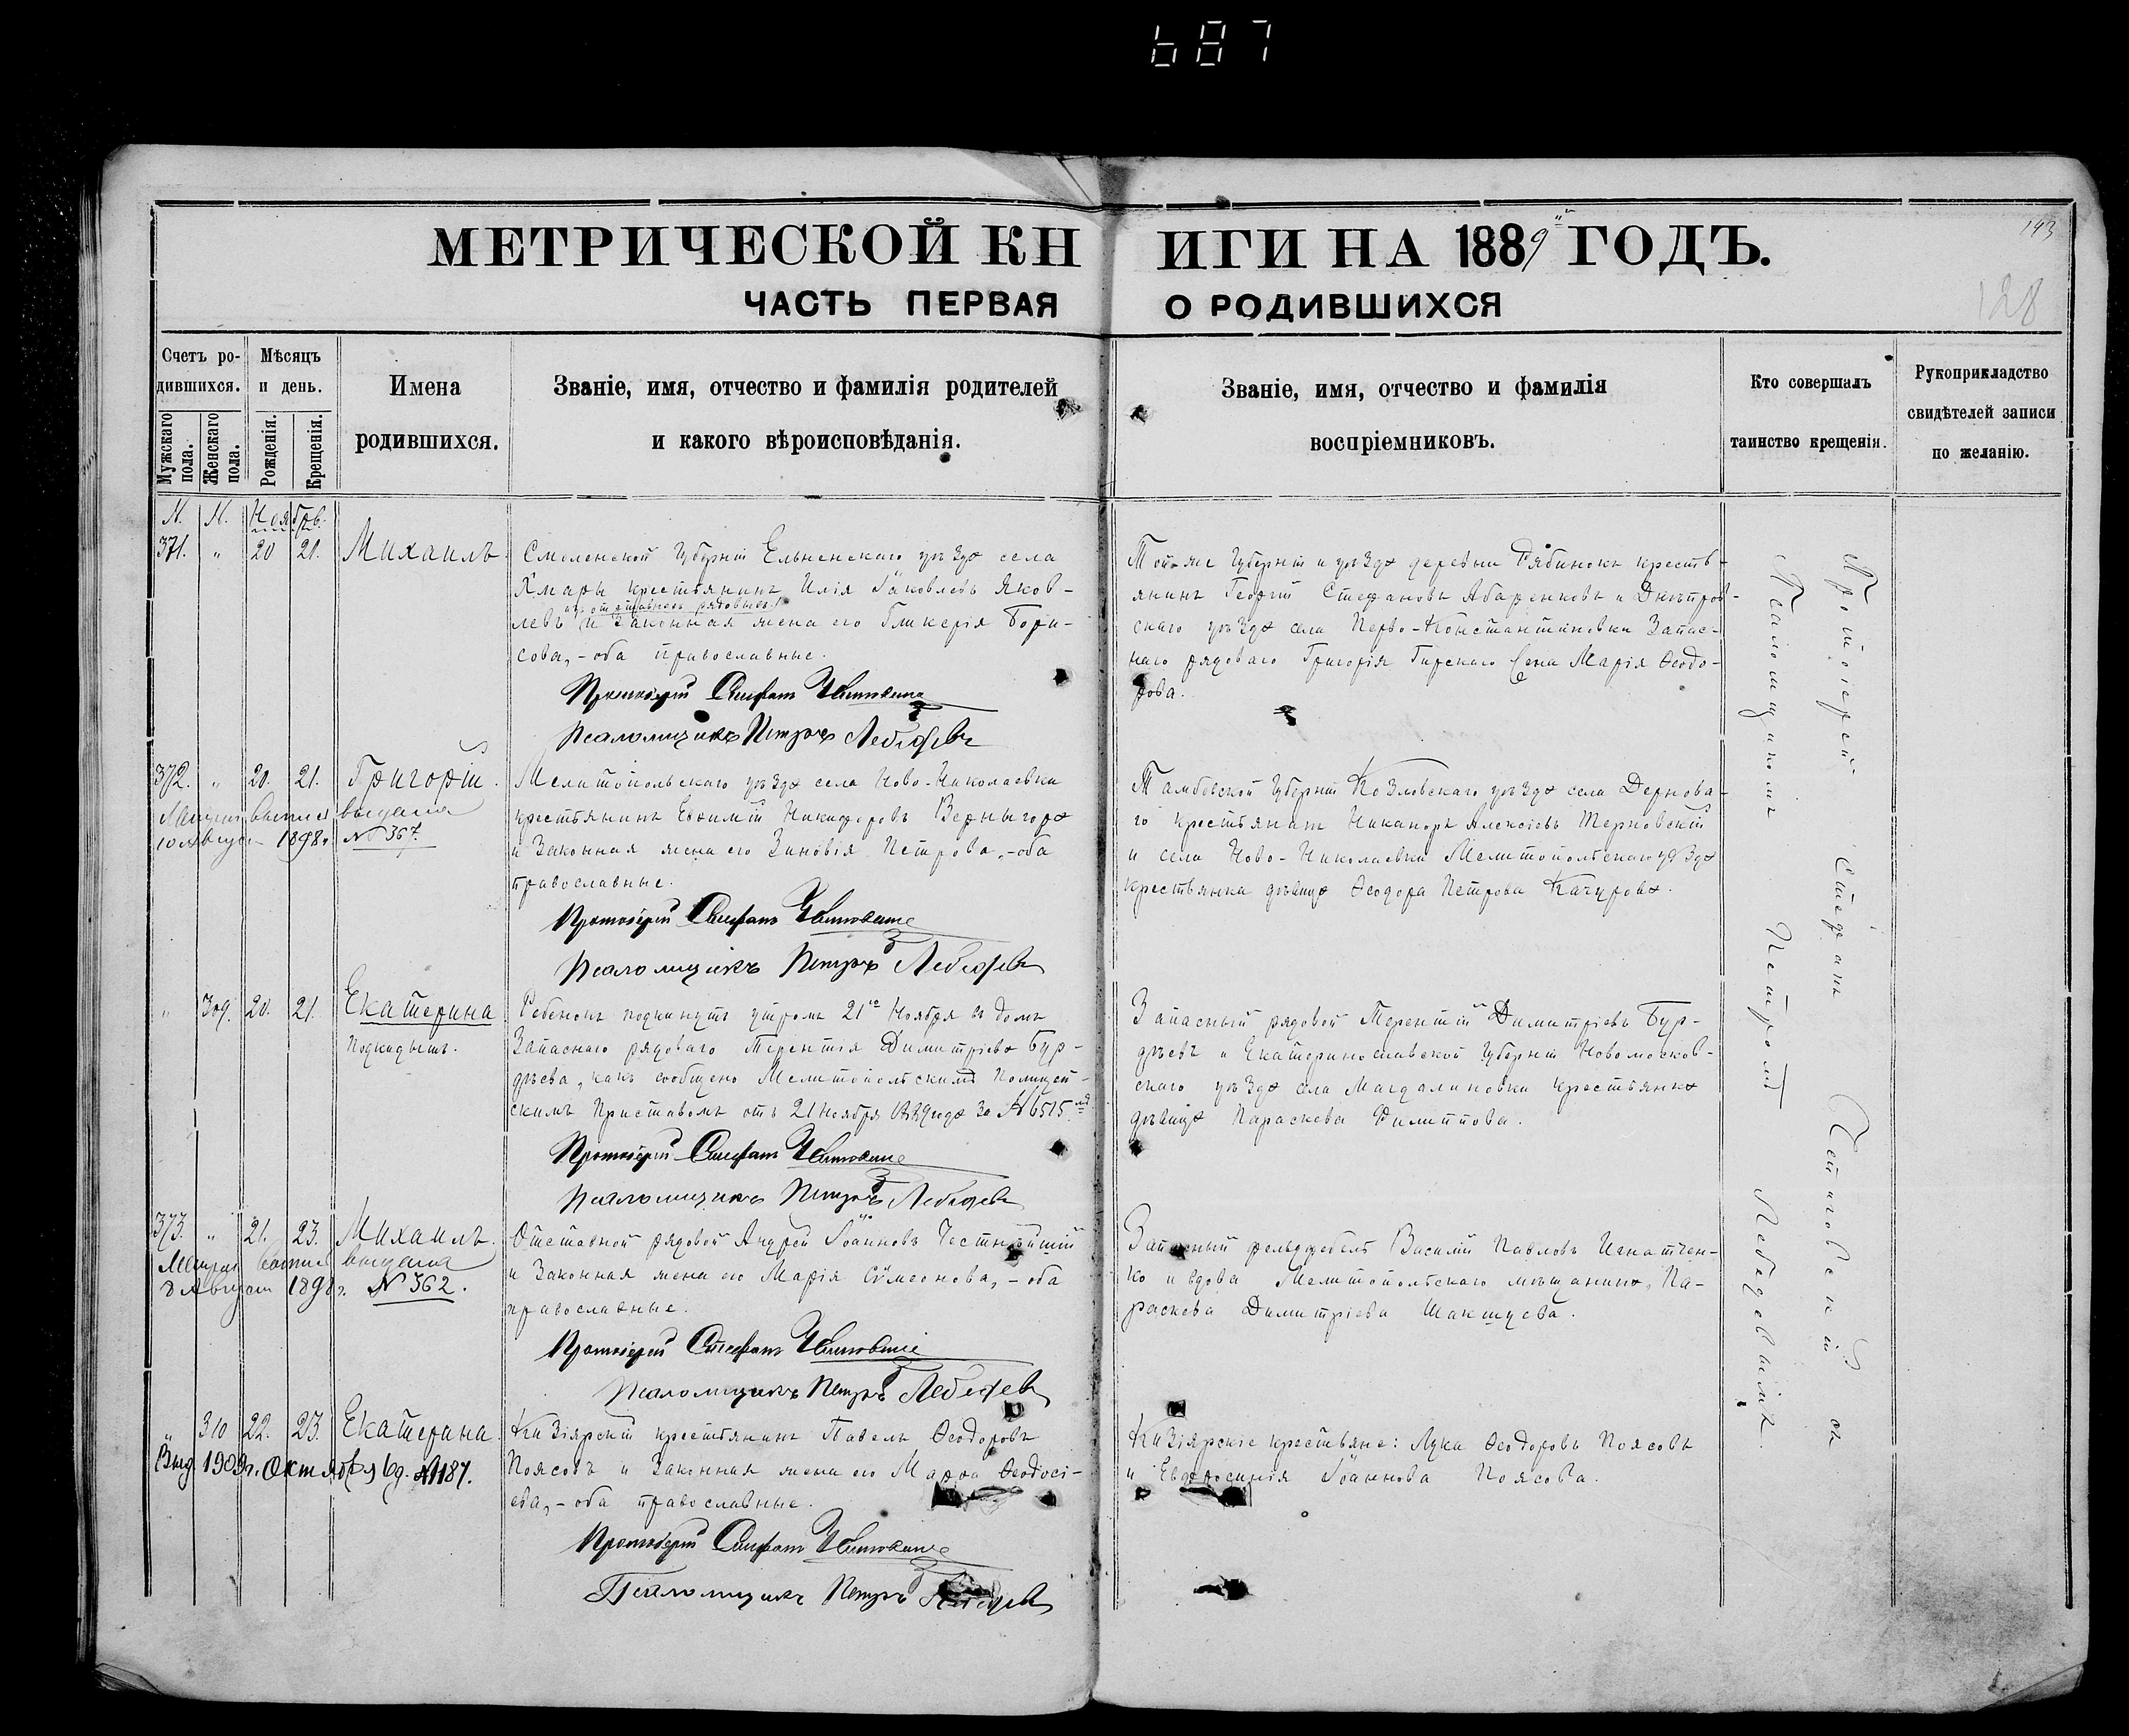 687
МЕТРИЧЕСКОЙ КНИГИ НА 1889й ГОДЪ.
143
ЧАСТЬ ПЕРВАЯ О РОДИВШИХСЯ
128
Счетъ родившихся.
Мужскаго пола.
Женскаго пола.
Мѣсяцъ и день.
Рожденія.
Крещенія.
Имена родившихся.
Званіе, имя, отчество и фамилія родителей
и какого вѣроисповѣданія.
Званіе, имя, отчество и фамилія
воспріемниковъ.
Кто совершалъ
таинство крещенія.
Рукоприкладство
свидѣтелей записи
по желанію.
М. М. Ноябрь.
371. " 20 21. Михаилъ
Смоленской губерніи Ельненскаго уѣзда села
Хмары крестьянинъ Илія Іаковлевъ Яков-
изъ отставныхъ рядовыхъ
левъ и законная жена его Гликерія Бори-
сова, - оба православные.
Протоіерей Стефанъ
Псаломщикъ Петръ Лебедевъ
Той-же губерніи и уѣзда деревни Рябинокъ кресть-
янинъ Георгій Стефановъ Абаренковъ и Днѣпров-
скаго уѣзда села Перво-Константиновки запас-
наго рядоваго Григорія Гирскаго жена Марія Ѳеодо-
рова.
372. " 20. 21. Григорій.
выдана
10 Август 1898 г. № 367.
Мелитопольскаго уѣзда села Ново-Николаевки
крестьянинъ Евѳимій Никифоровъ Вернигора
и законная жена его Зиновія Петрова, - оба
православные.
Протоіерей Стефанъ
Псаломщикъ Петръ Лебедевъ
Тамбовской губерніи Козловскаго уѣзда села Дернова-
го крестьянинъ Никаноръ Алексіевъ Терновскій
и села Ново-Николаевки Мелитопольскаго уѣзда
крестьянка дѣвица Ѳеодора Петрова Качурова.
" 309. 20. 21. Екатерина
Подкидышъ.
Ребенокъ подкинутъ утромъ 21го Ноября въ домъ
запаснаго рядоваго Терентія Димитріева Бур-
дѣева, какъ сообщено Мелитопольскимъ Полицей-
скимъ Приставомъ отъ 21 Ноября 1889 года за № 6515мъ.
Протоіерей Стефанъ
Псаломщикъ Петръ Лебедевъ
Запасный рядовой Терентій Димитріевъ Бур-
дѣевъ и Екатеринославской губерніи Новомосков-
скаго уѣзда села Магдалиновки крестьянка
дѣвица Параскева Филиппова.
373. " 21. 23. Михаилъ.
выдана
8 Август 1898 г. № 362.
Отставной рядовой Андрей Іоанновъ Честнѣйшій
и законная жена его Марія Сѵмеонова, - оба
православные.
Протоіерей Стефанъ
Псаломщикъ Петръ Лебедевъ
Запасный фельдфебель Василій Павловъ Игнатчен-
ко и вдова Мелитопольскаго мѣщанина, Па-
раскева Димитріева Шакшуева.
" 310 22. 23. Екатерина.
Выд. 1909 г. Октября 6 д. № 1187.
Кизіярскій крестьянинъ Павелъ Ѳеодоровъ
Поясовъ и законная жена его Марѳа Ѳеодосі-
ева, - оба православные.
Протоіерей Стефанъ
Псаломщикъ Петръ Лебедевъ
Кизіярскіе крестьяне: Лука Ѳеодоровъ Поясовъ
и Евфросинія Іоаннова Поясова.
Протоіерей Стефанъ съ
Псаломщикомъ Петромъ Лебедевымъ.